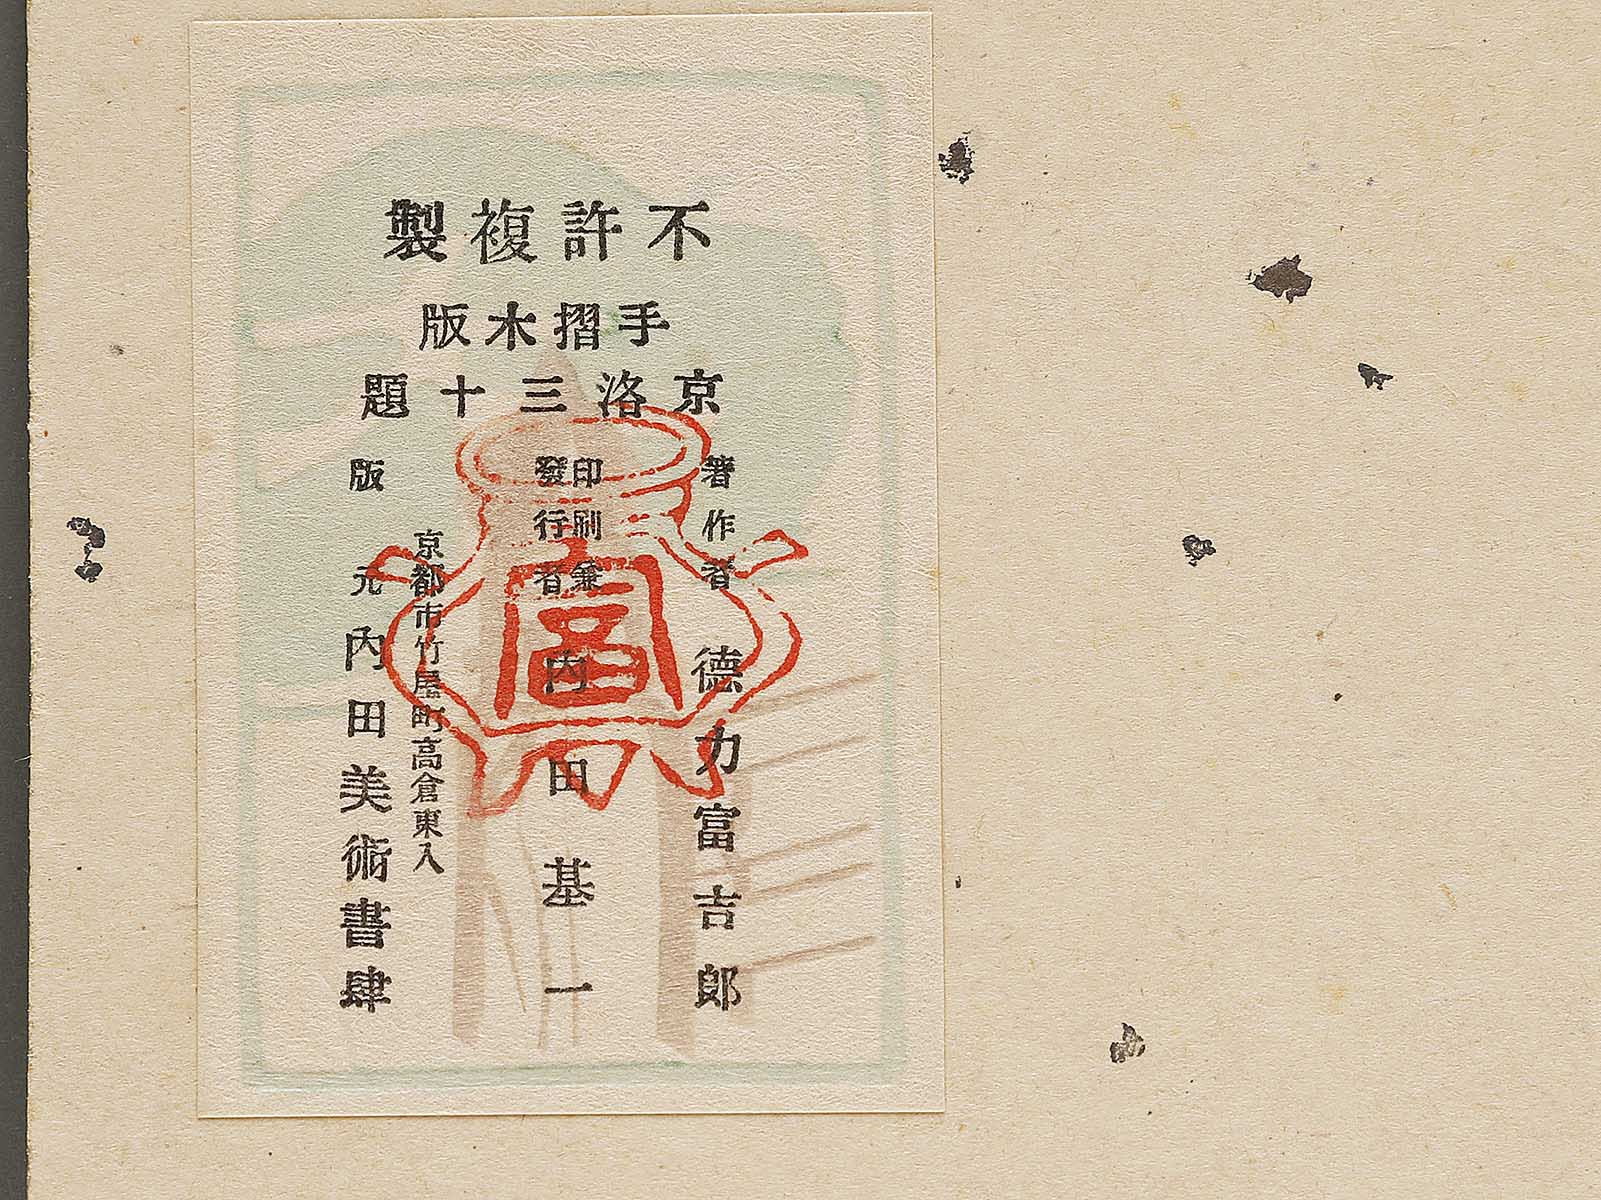 不許複製
手摺木版
京洛三十題
著作者 德力富吉郎
印刷兼
發行者 內田基一
京都市竹屋町高倉東入
版元 內田美術書肆
富